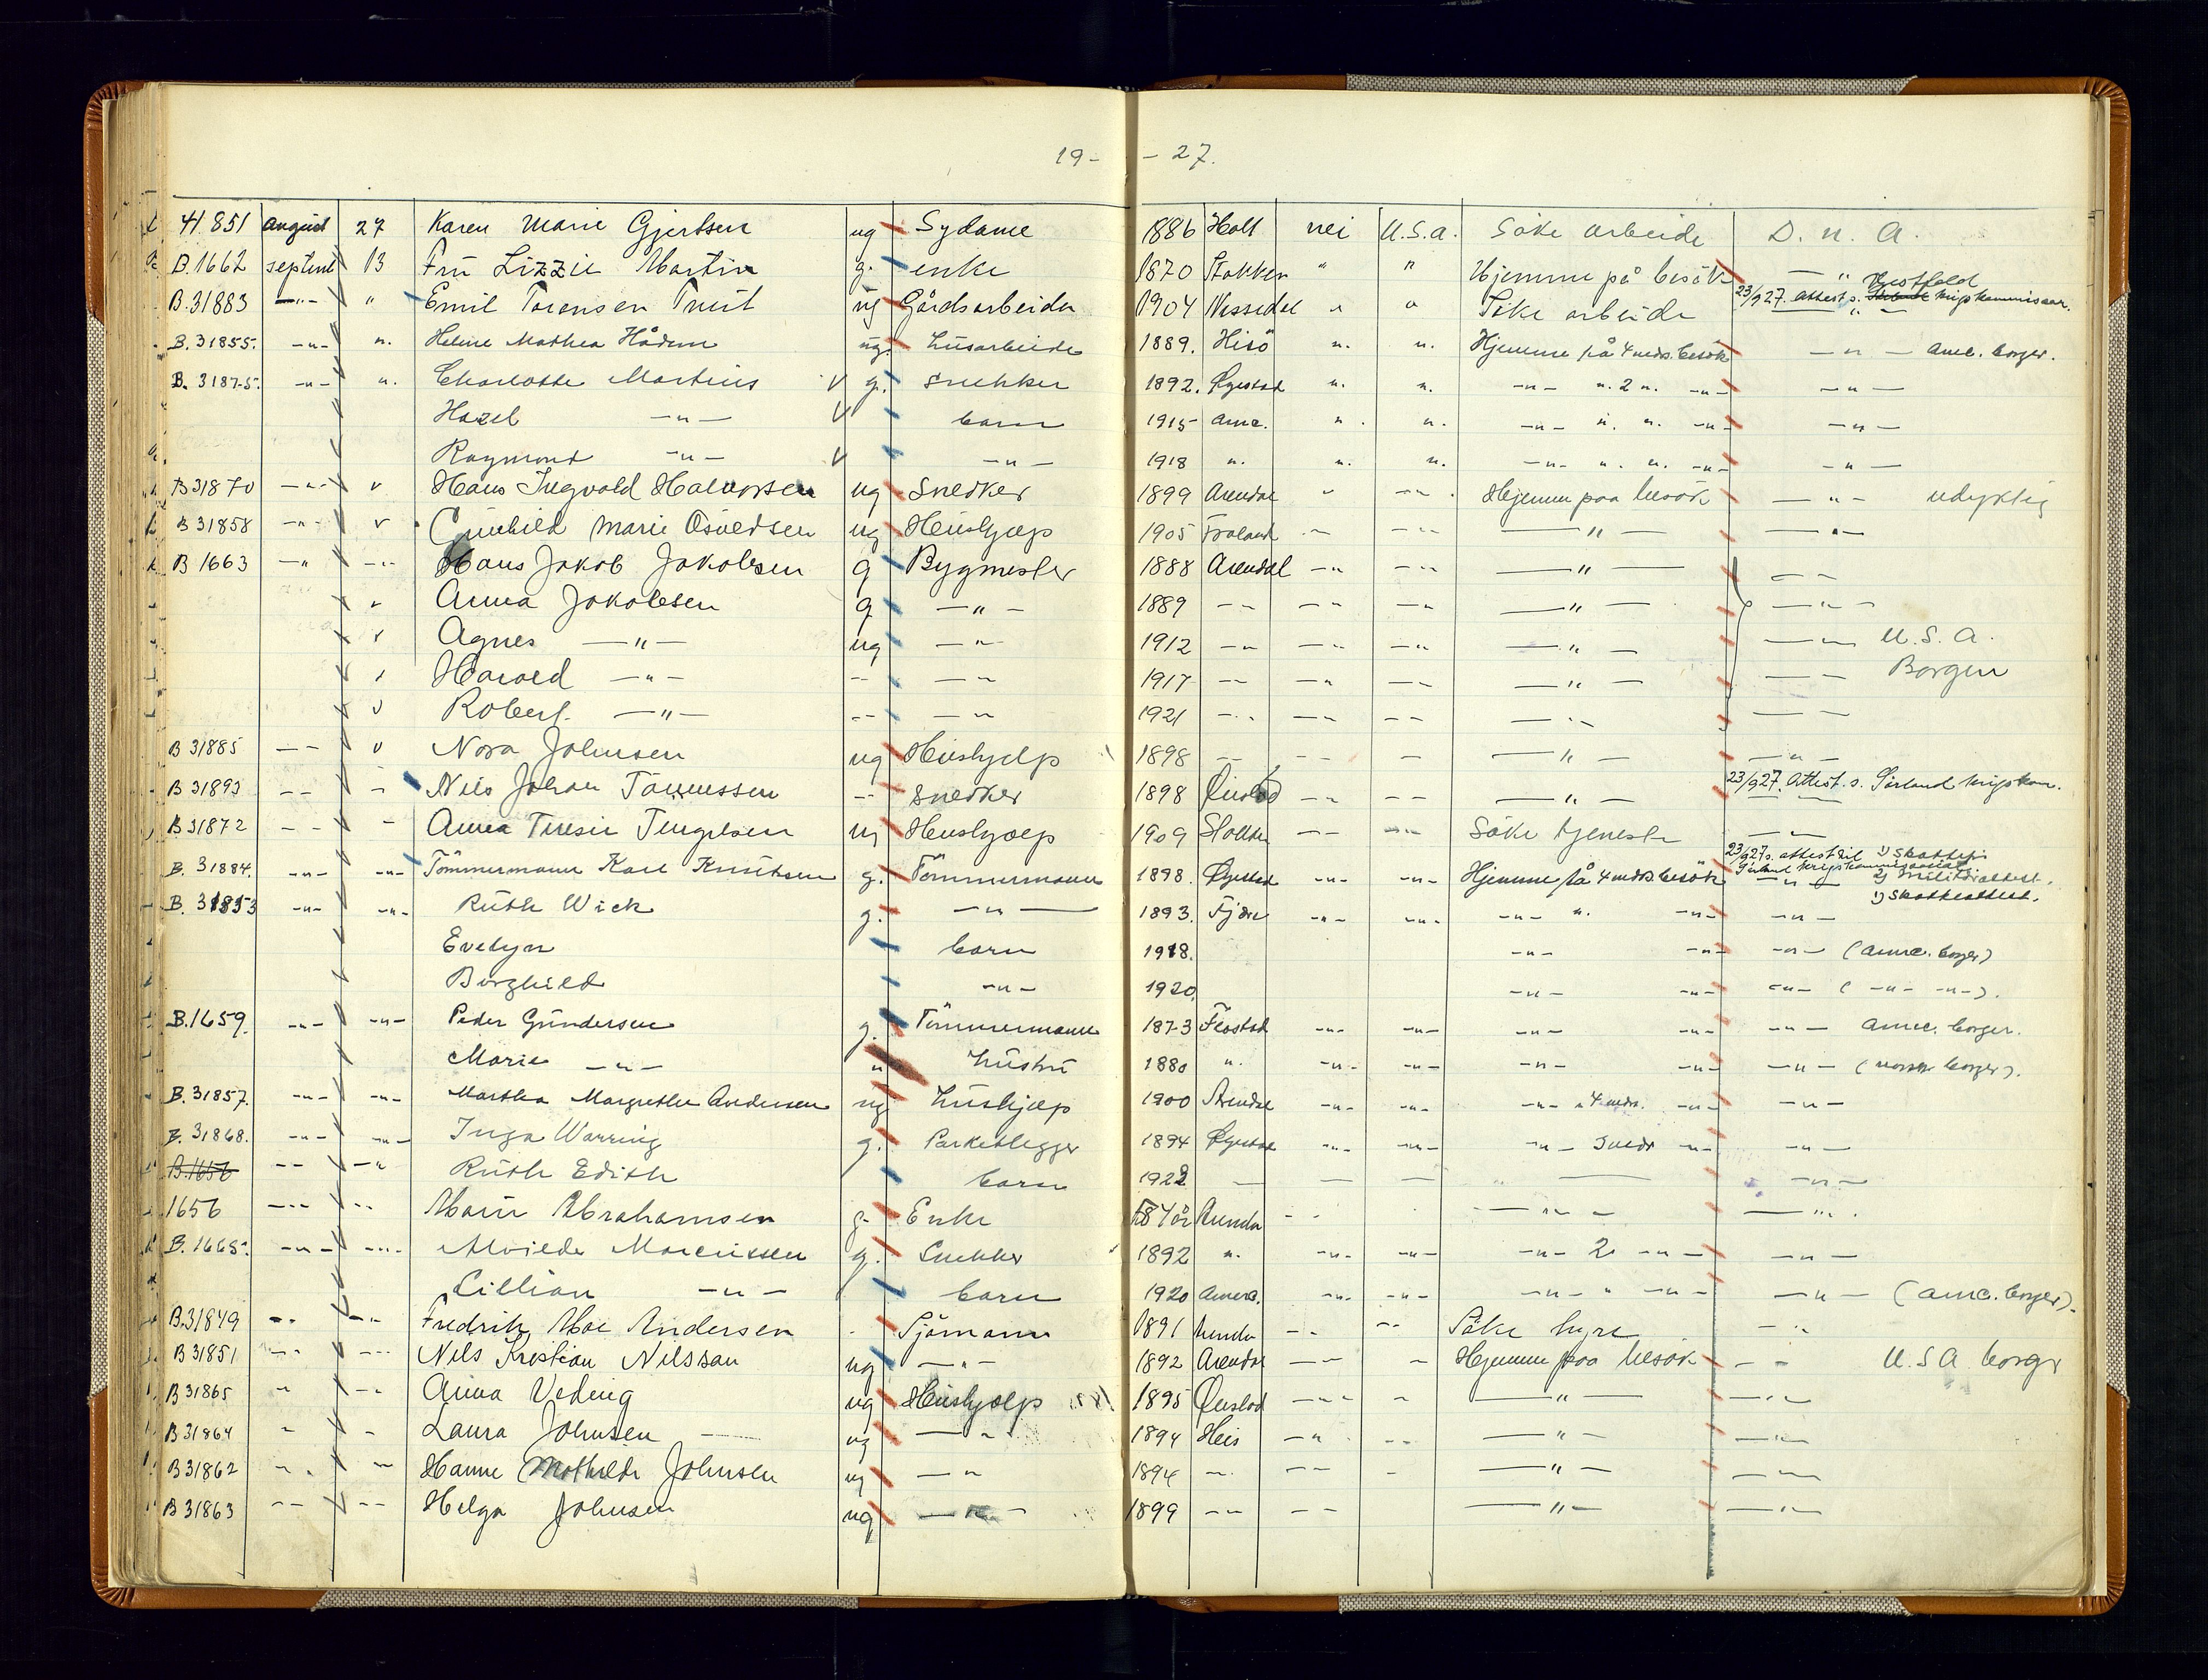 19- - 27.
41.851 august 27 Karen Marie Gjertsen ug Sydame 1886 Holt nei U.S.a. Söke arbeide D. n. A.
B.1662 septemb 13 Frü Lizzie Martin g. enke 1870 Stokken " " Hjemme på besök — " Vestfold
B.31883 —"— " Emil Torensen ug Gårdsarbeider 1904 Nissedal " " Söke arbeide 23/9 27. attest s. krigskommisær. — " —
B.31855. -"- ". Helene Mathea ug. Husarbeide 1889. Hisö ". ". Hjemme på 4 mdrs. besök — " — amr. borger.
B.31875. -"- ". Charlotte Martins V g. snekker 1892. Øyestad ". ". -"- ". 2 ". -"- -"-
Hazel -"- V barn 1915 amr. ". ". -"- ". ". -"- -"-
Raymond -"- V -"- 1918 ". ". ". -"- ". ". -"- -"-
B31870 -"- v Hans Ingvald Halvorsen ug Snedker 1899 Arendal " -"- Hjemme paa besök — " — udyktig
B 31858 -"- v Gunhild Marie Osvedsen ug Hüshjælp 1905 Froland -- --- — " — — " —
B 1663 -" --- Hans Jakob Jakobsen g Bygmester 1888 Arendal -- --- — " — — —
v Anna Jakobsen g — " — 1889 -- -- -- — " — — " —
v Agnes — " — ug — " — 1912 -- -- -- — " — — — U.S.A.
v Harold — " — -- — — 1917 -- -- -- — " — — — Borger
v Robert — " — -- — — 1921 --- -- -- — " — — —
B 31885 -- v Nora Johnsen ug Hüshjelp 1898 -- -- - — " — — " —
B 31893 -- - Nils Johan Tönnessen -- snedker 1898 Öiestad -- -- — " — 23/9 27. Attest. s. Sörland krigskom.
B 31872 -- - Anna Teresie ug Hüshjælp 1909 -- -- Söke tjeneste — —
B. 31884. -"- -"- Tömmermann Karl Knütsen g. Tömmermann 1898. Øyestad -"- -"- Hjemme på 4 mdrs. besök 23/9 27 s. attest til Sörland krigskommissariat 1) Skattefri 2) Militæratest. — " —
B. 31853 -"- -"- Rüth Wick g. — " — 1893. -"- -"- -"- ". -"- -"- 1) Skatteattest.
Evelyn barn 1918. -"- -"- -"- (amr. borger)
Borghild -"- 1920. -"- -"- -"- ( -"- -"- ).
B.1659. -"- -"- Peder Gündersen g. Tömmermann 1873 Flostad -"- -"- -"- -"- -"- amr. borger.
Marie -"- " hüstrü 1880 ". -"- -"- -"- -"- -"- (norsk borger).
B. 31857. -"- -"- Martha Margrethe Andersen ug hüshjælp 1900 Arendal -"- -"- -"- 4 mdr. -"- -"-
B. 31868. -"- -"- Inga Warring g. Parketlegger 1894 Øyestad -"- -"- -"- 3 mdr -"- -"-
B.1656 -- -" Rüth Edith barn 1922 — — — — -"-
1656 --- -- Marie Abrahamsen g. Enke 58 år Arendal -- - — " — — " —.
B. 1665. -"- -"- Alvilde Marcüssen g. Snekker 1892 ". -"- -"- -"- 2 -"- -"-
Lillian -"- barn 1920 Amera. -"- -"- -"- " -"- -"- (amr. borger).
B.31849 -- --- Fredrik Moe Andersen - Sjömann 1891 Arendal -- -- Söke hyre — "
B 31851 -- --- Nils Kristian Nilssan ug — " — 1892 Arendal -- - Hjemme paa besök — — U.S.A. borger
B 31865 - -- Anna ug Hüshjælp 1895 Öiestad --- - — " — — " —
B 31864 - - Laura Johnsen ug — " 1894 Heis -" -- — " — — " —
B 31862 -- -- Hanne Mathilde Johnsen ug — " 1894 -- -- - — " — — —
B 31863 -- -- Helga Johnsen ug — " — 1899 -- -- — " — — " —